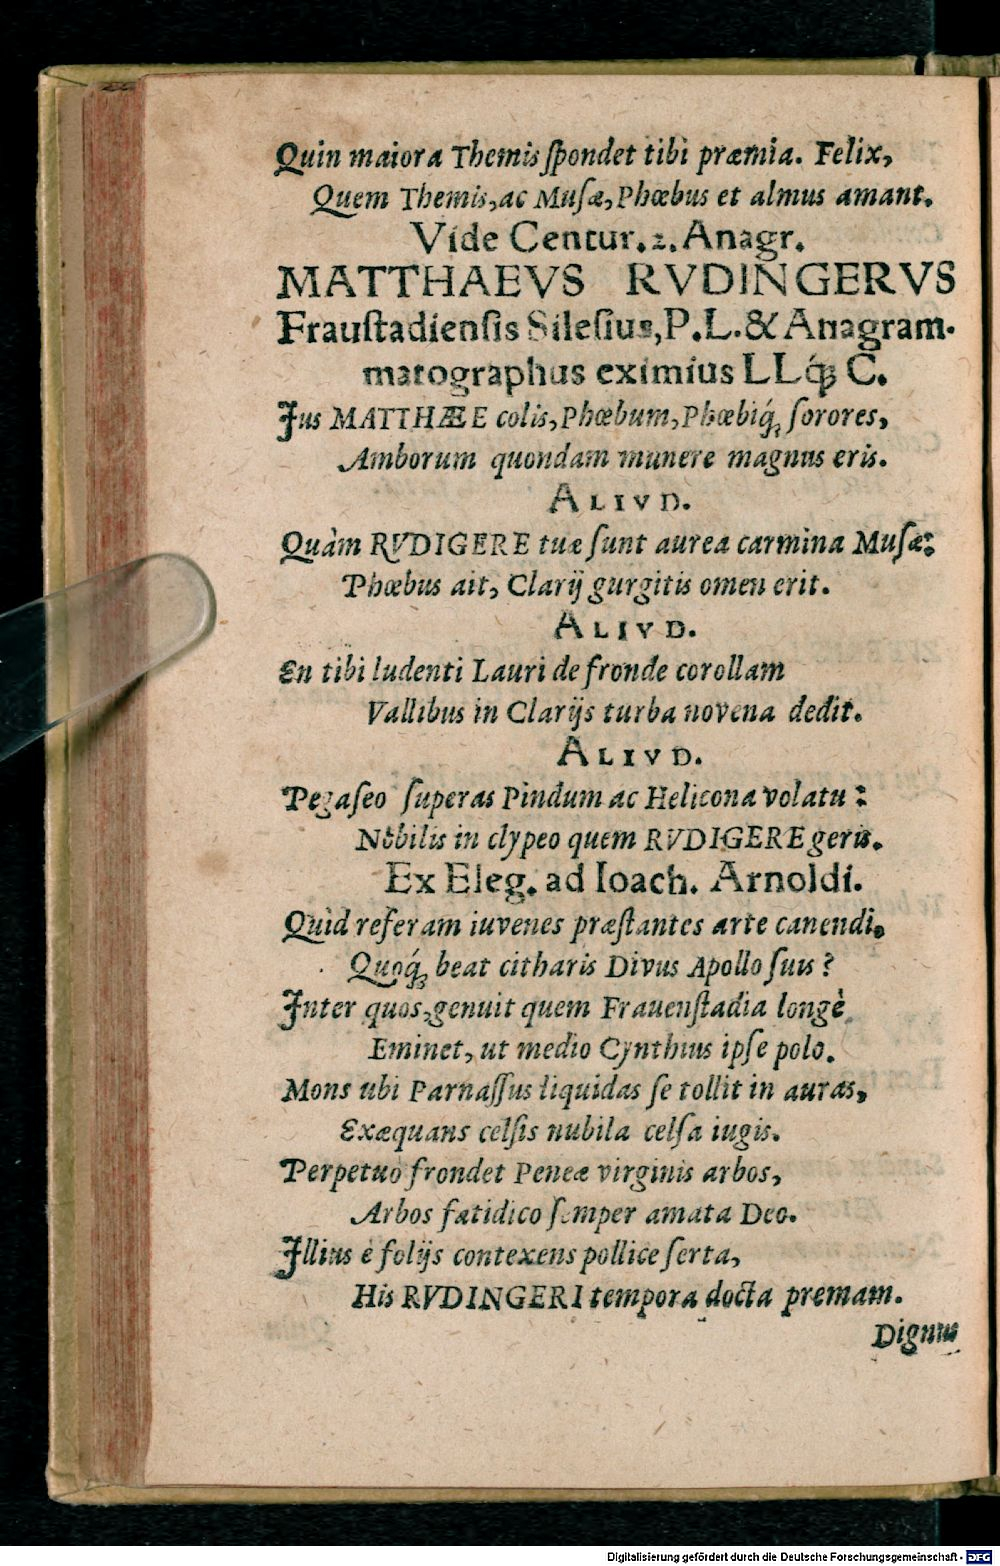 Quin maiora Themis ſpondet tibi præmia. Felix,
Quem Themis, ac Muſæ, Phœbus et almus amant.
Vide Centur. 2. Anagr.
MATTHAEVS RVDINGERVS
Frauſtadienſis Sileſius, P. L. & Anagram-
matographus eximius LLq́; C.
Jus MATTHÆE colis, Phœbum, Phœbiq́; ſorores,
Amborum quondam munere magnus eris.
ALIVD.
Quàm RVDIGERE tuæ ſunt aurea carmina Muſæ:
Phœbus ait, Clarij gurgitis omen erit.
ALIVD.
En tibi ludenti Lauri de fronde corollam
Vallibus in Clarijs turba novena dedit.
ALIVD.
Pegaſeo ſuperas Pindum ac Helicona volatu:
Nobilis in clypeo quem RVDIGERE geris.
Ex Eleg. ad Ioach. Arnoldi.
Quid referam iuvenes præſtantes arte canendi,
Quoq́; beat citharis Divus Apollo ſuis?
Inter quos, genuit quem Frauenſtadia longè
Eminet, ut medio Cynthius ipſe polo.
Mons ubi Parnaſſus liquidas ſe tollit in auras,
Exæquans celſis nubila celſa iugis.
Perpetuò frondet Peneæ virginis arbos,
Arbos fatidico ſemper amata Deo.
Illius è folijs contexens pollice ſerta,
His RVDINGERI tempora docta premam.
Dignus
Digitalisierung gefördert durch die Deutsche Forschungsgemeinschaft - DFG